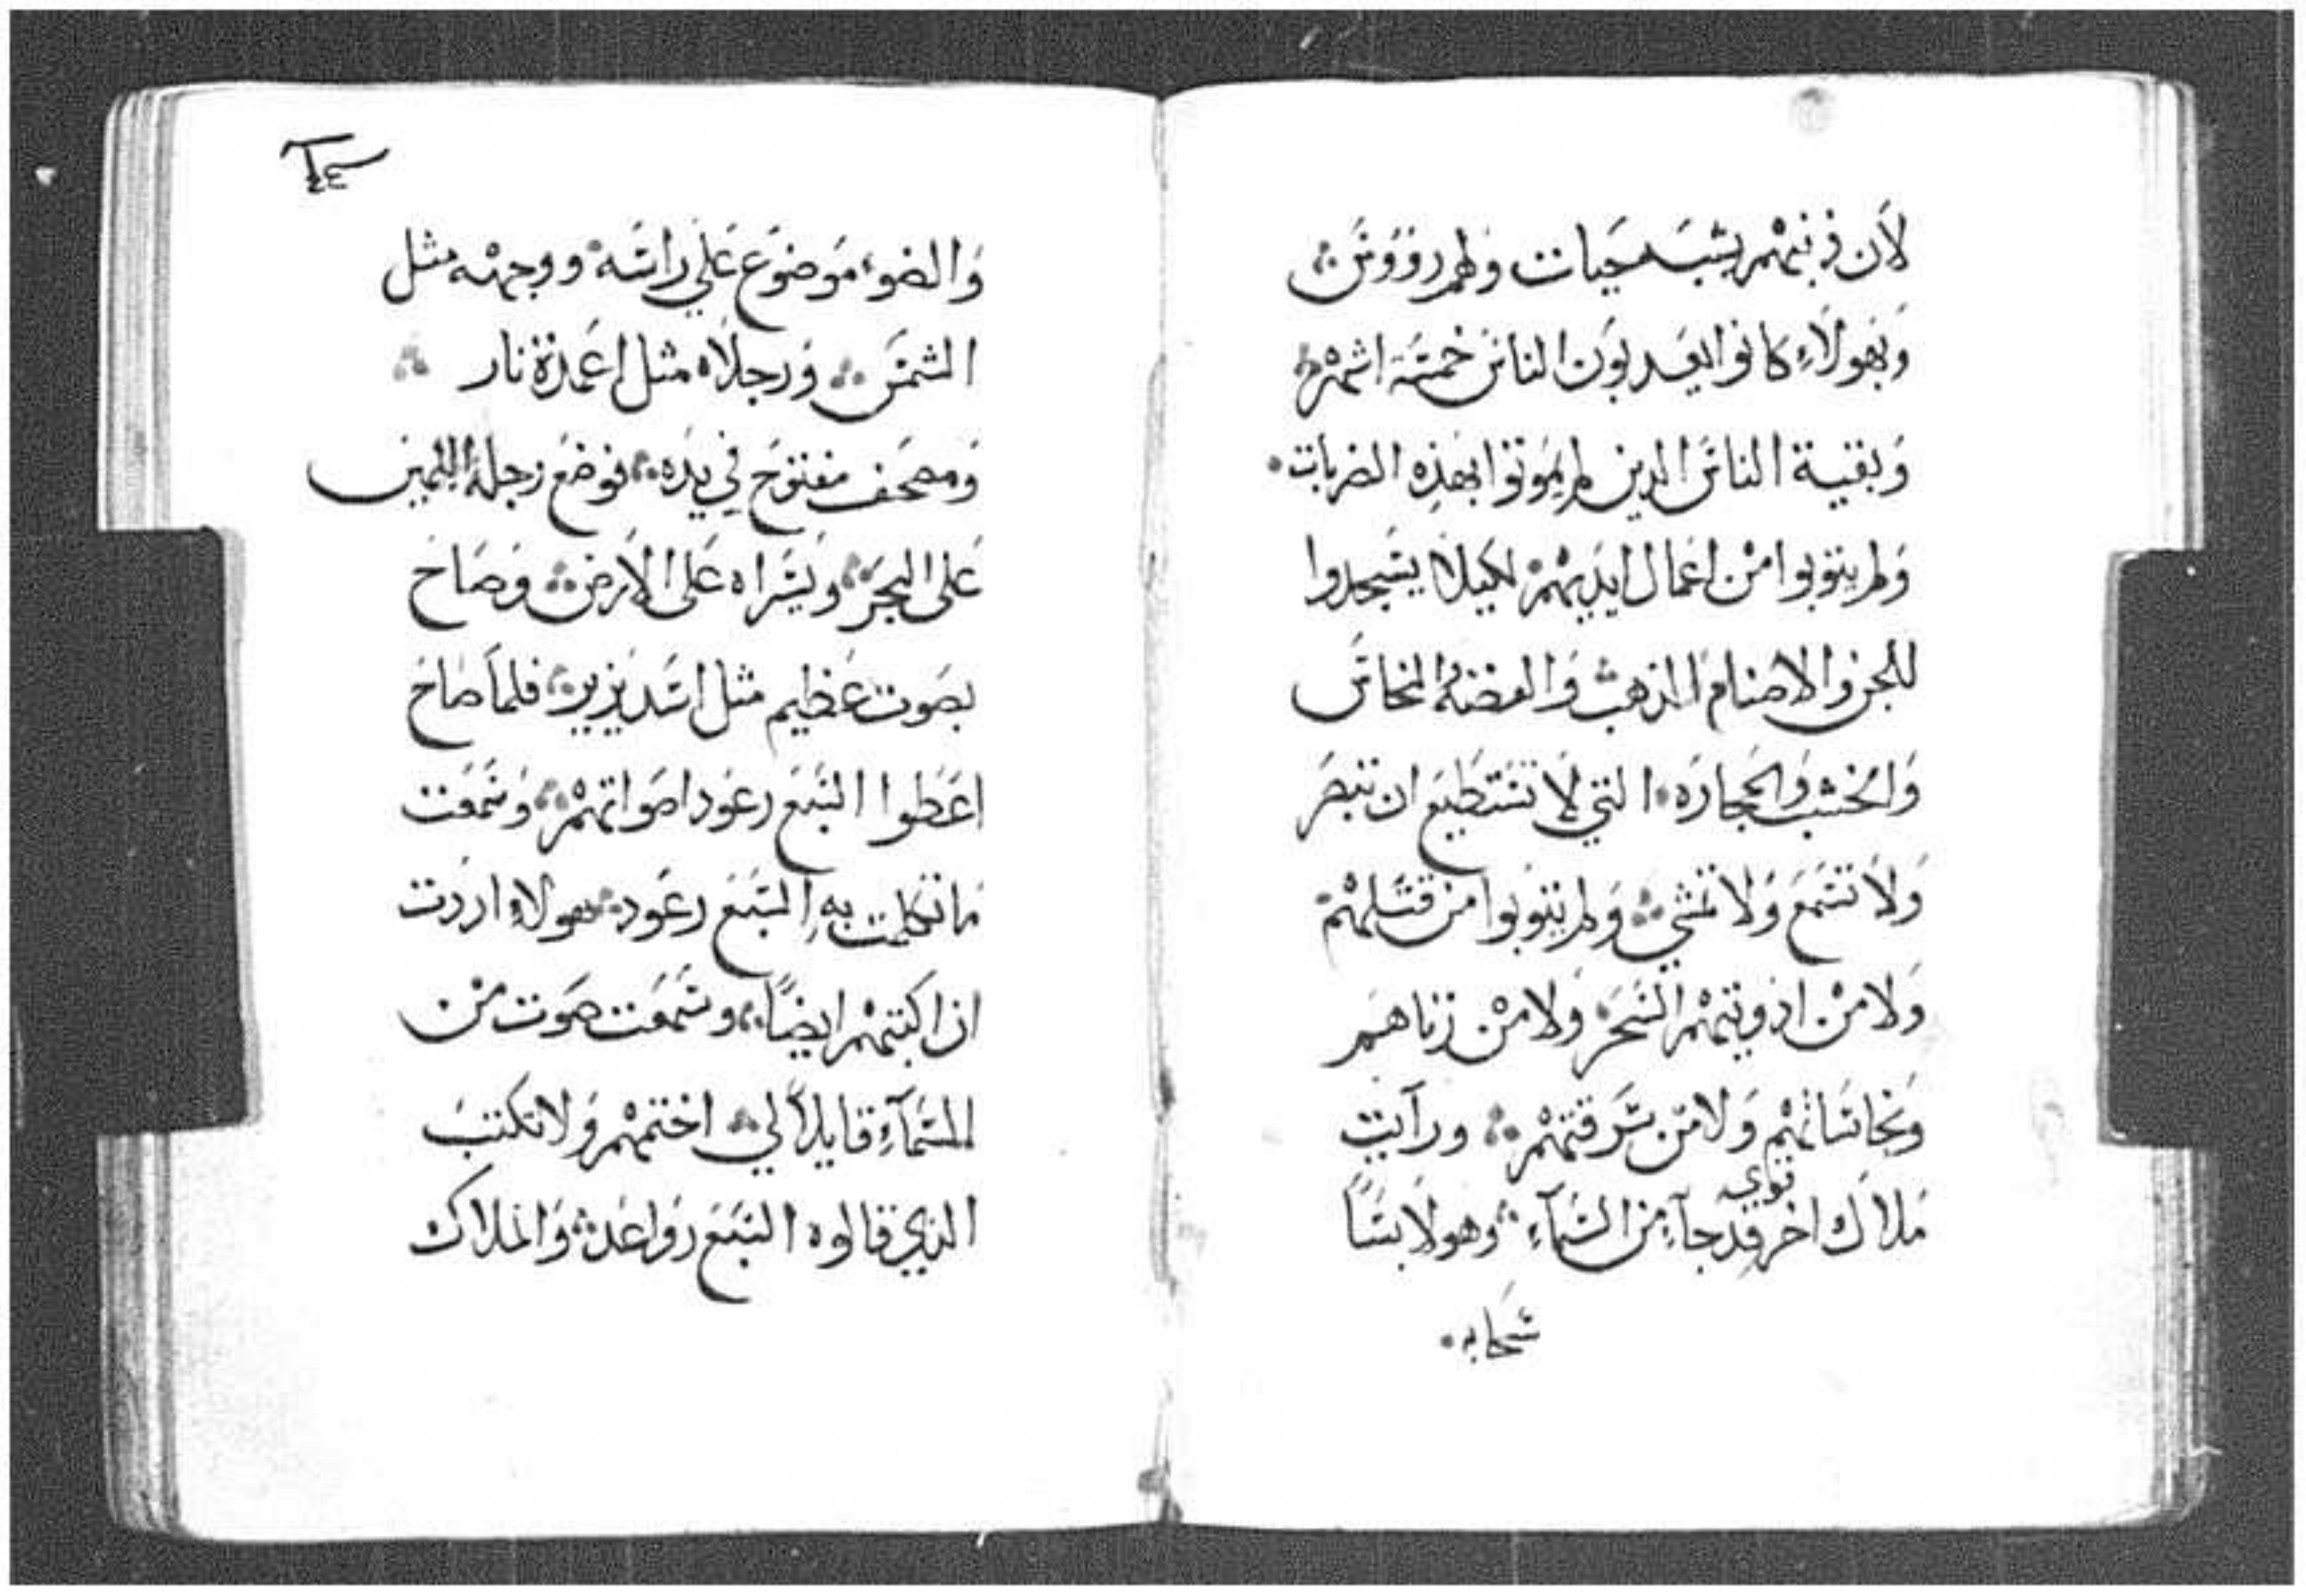 لان ذنبتهم يشبه حيات ولهم رووس
وبهولاء كانوا يعدبون الناس خمسة اشهر
وبقية الناس الدين لم يموتوا بهذه الضربات
ولم يتوبوا من اعمال ايديهم لكيلا يسجدوا
للجن والاصنام الذهب والفضه والنحاس
والخشب والحجاره التي لا تستطيع ان تبصر
ولا تسمع ولا تمشي ولم يتوبوا من قتلهم
ولا من ادويتهم السحر ولا من زناهم
ونجاساتهم ولا من سرقتهم ورآيت
ملاك اخر قوي قد جآء من السمآء وهو لابسًا
سحابه
والضوء موضوع علي راسه ووجهه مثل
الشمس ورجلاه مثل اعمدة نار
ومصحف مفتوح في يده فوضع رجله اليمين
على البحر ويسراه على الارض وصاح
بصوت عظيم مثل اسد يزير فلما صاح
اعطوا السبع رعود اصواتهم وسمعت
ما تكلمت به السبع رعود هولاء اردت
ان اكتبهم ايضًا وسمعت صوت من
السمآء قايلاً لي اختمهم ولا تكتب
الذي قالوه السبع رواعد والملاك